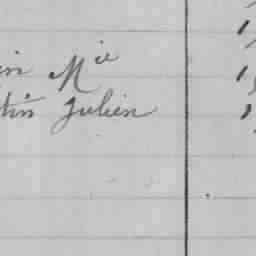 in Mie
tin Julien